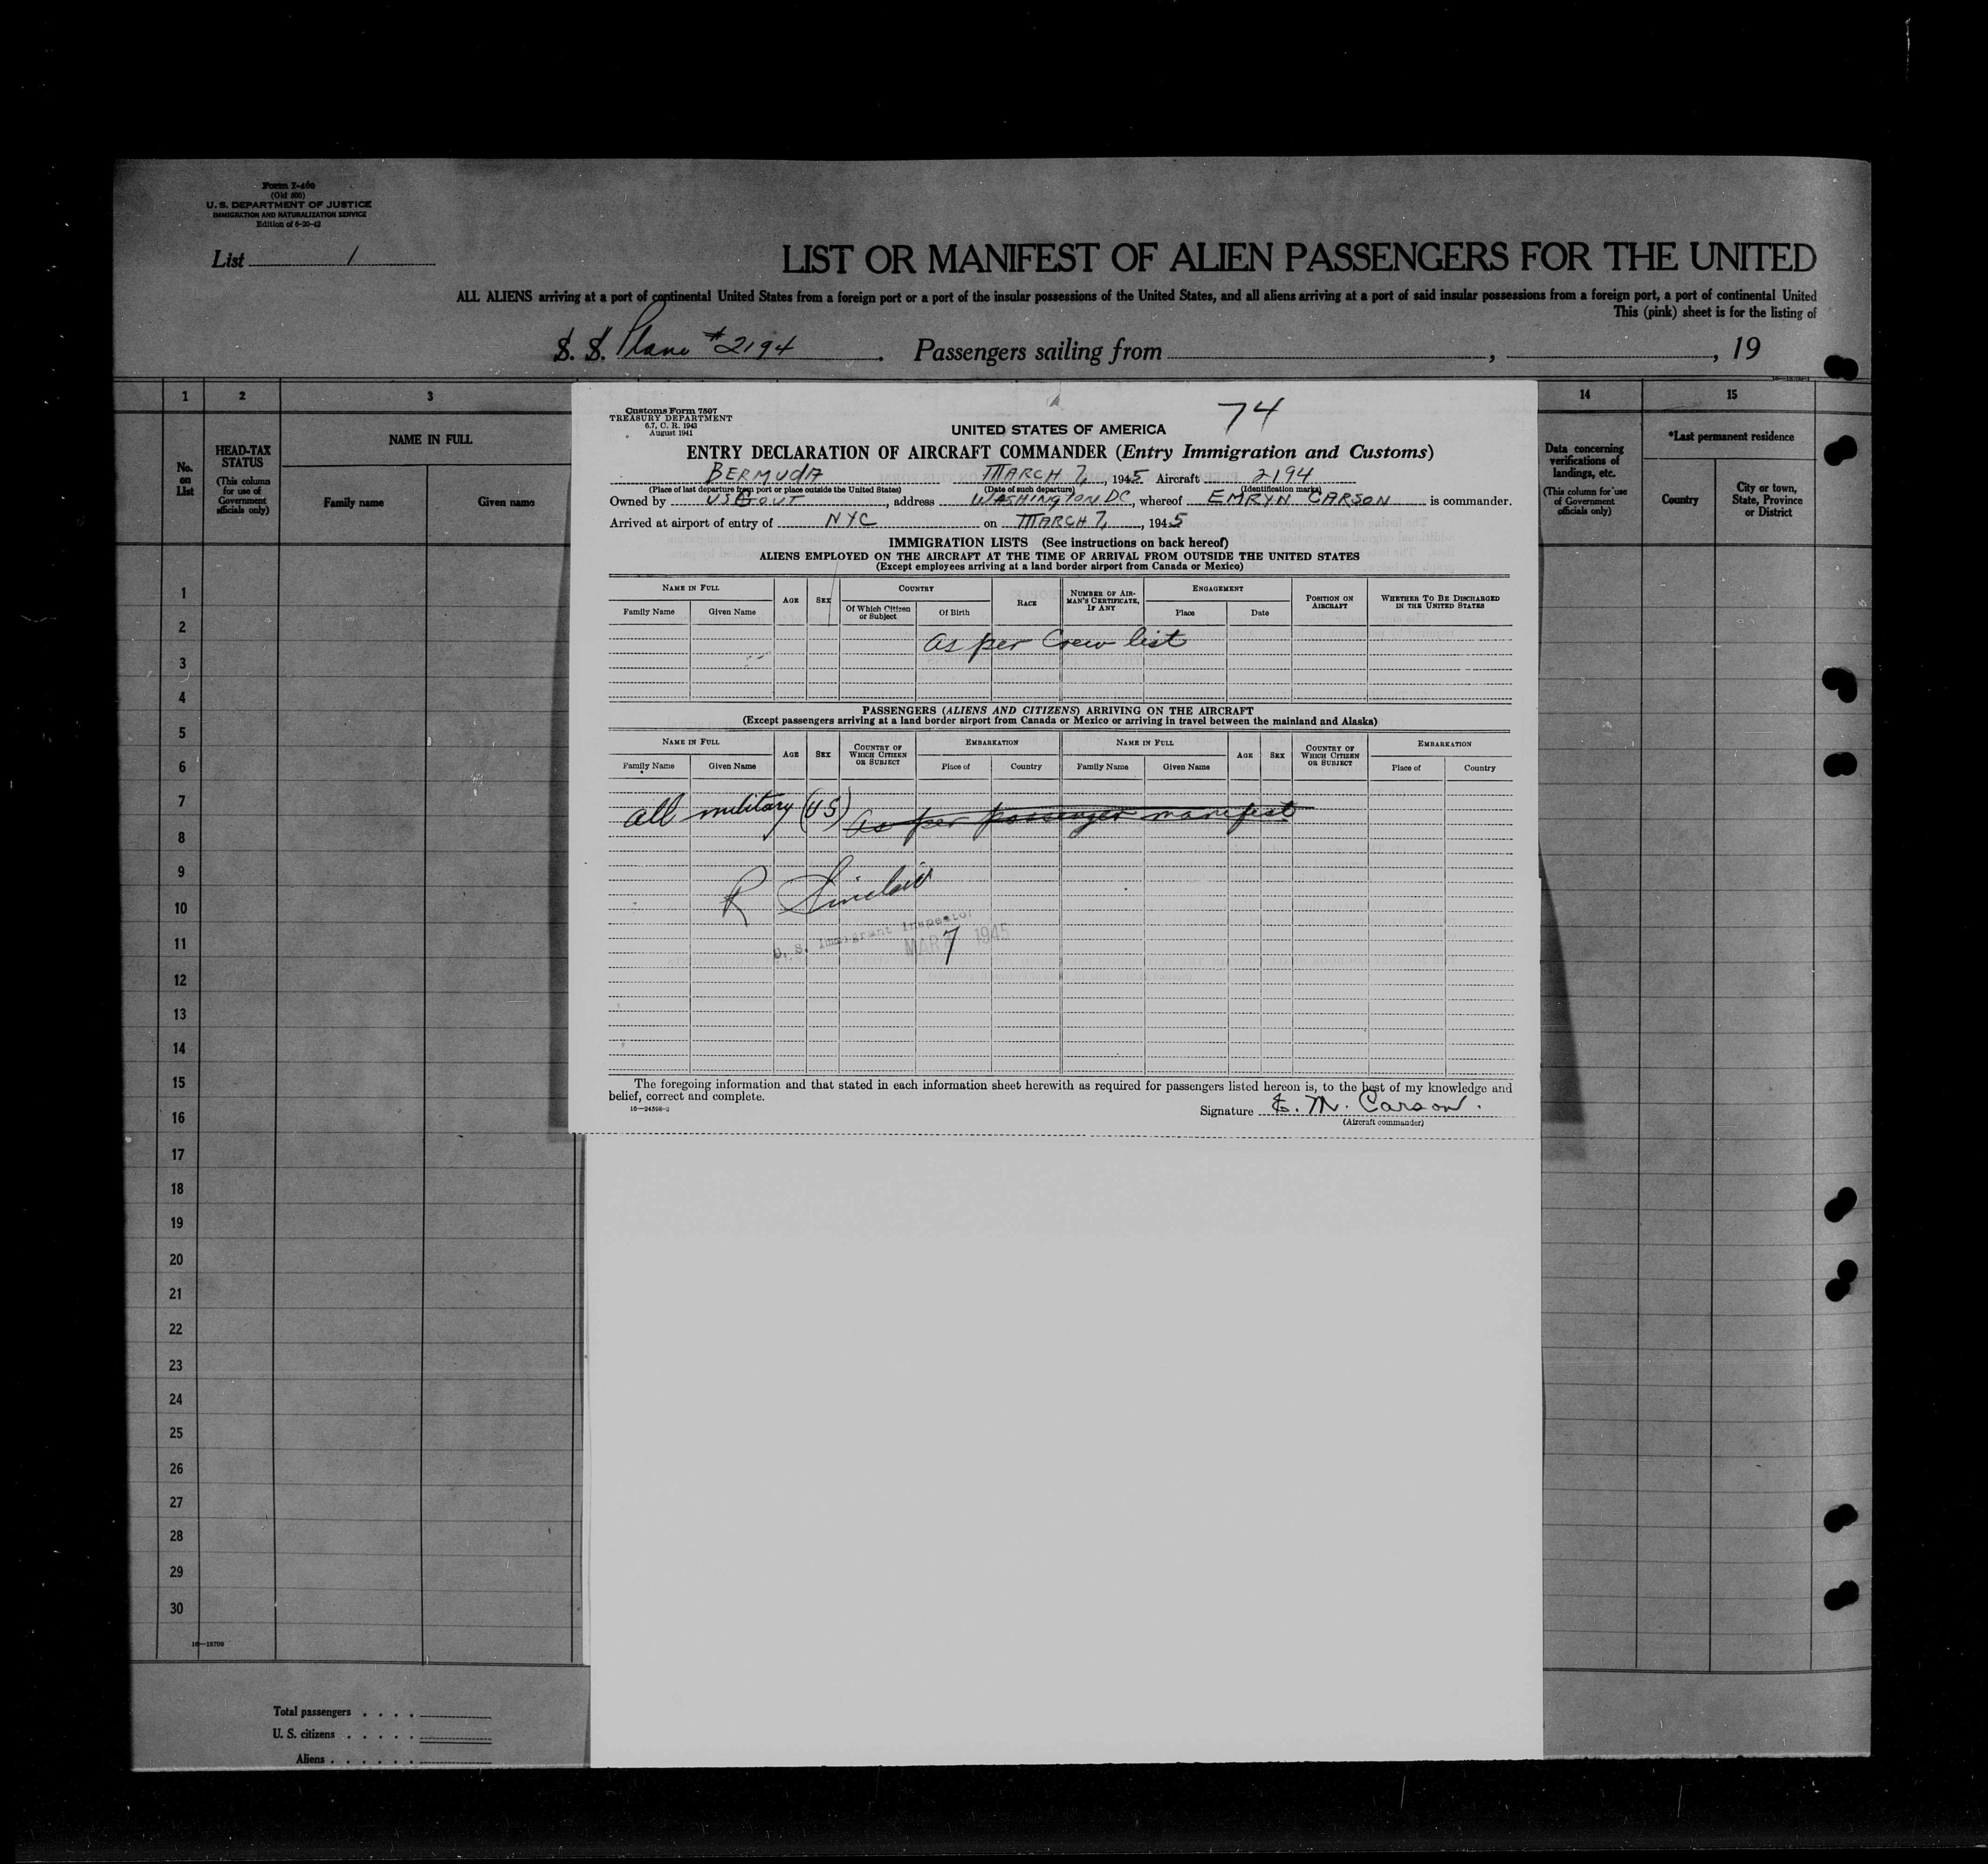 Form I-400
(Old 500)
U. S. DEPARTMENT OF JUSTICE
IMMIGRATION AND NATURALIZATION SERVICE
Edition of 6-20-42
List 1
LIST OR MANIFEST OF ALIEN PASSENGERS FOR THE UNITED
ALL ALIENS arriving at a port of continental United States from a foreign port or a port of the insular possessions of the United States, and all aliens arriving at a port of said insular possessions from a foreign port, a port of continental United
This (pink) sheet is for the listing of
S. S. Plane #2194. Passengers sailing from , , 19
1 2 3 14 15
No. on List
HEAD-TAX STATUS
(This column for use of Government officials only)
NAME IN FULL
Family name Given name
Data concerning verifications of landings, etc.
(This column for use of Government officials only)
*Last permanent residence
Country City or town, State, Province or District
Customs Form 7507
TREASURY DEPARTMENT
6.7, C. R. 1943
August 1941
74
UNITED STATES OF AMERICA
ENTRY DECLARATION OF AIRCRAFT COMMANDER (Entry Immigration and Customs)
BERMUDA MARCH 7, 1945 Aircraft 2194
(Place of last departure from port or place outside the United States) (Date of such departure) (Identification marks)
Owned by US GOVT, address WASHINGTON DC, whereof EMRYN CARSON is commander.
Arrived at airport of entry of NYC on MARCH 7, 1945
IMMIGRATION LISTS (See instructions on back hereof)
ALIENS EMPLOYED ON THE AIRCRAFT AT THE TIME OF ARRIVAL FROM OUTSIDE THE UNITED STATES
(Except employees arriving at a land border airport from Canada or Mexico)
NAME IN FULL AGE SEX COUNTRY RACE NUMBER OF AIRMAN'S CERTIFICATE, IF ANY ENGAGEMENT POSITION ON AIRCRAFT WHETHER TO BE DISCHARGED IN THE UNITED STATES
Family Name Given Name Of Which Citizen or Subject Of Birth Place Date
as per Crew list
PASSENGERS (ALIENS AND CITIZENS) ARRIVING ON THE AIRCRAFT
(Except passengers arriving at a land border airport from Canada or Mexico or arriving in travel between the mainland and Alaska)
NAME IN FULL AGE SEX COUNTRY OF WHICH CITIZEN OR SUBJECT EMBARKATION NAME IN FULL AGE SEX COUNTRY OF WHICH CITIZEN OR SUBJECT EMBARKATION
Family Name Given Name Place of Country Family Name Given Name Place of Country
all military (US) as per passenger manifest
R Sinclair
U. S. Immigrant Inspector
MAR 7 1945
The foregoing information and that stated in each information sheet herewith as required for passengers listed hereon is, to the best of my knowledge and
belief, correct and complete.
16—24598-2
Signature E. M. Carson.
(Aircraft commander)
1
2
3
4
5
6
7
8
9
10
11
12
13
14
15
16
17
18
19
20
21
22
23
24
25
26
27
28
29
30
16—18709
Total passengers . . . .
U. S. citizens . . . . .
Aliens . . . . . .